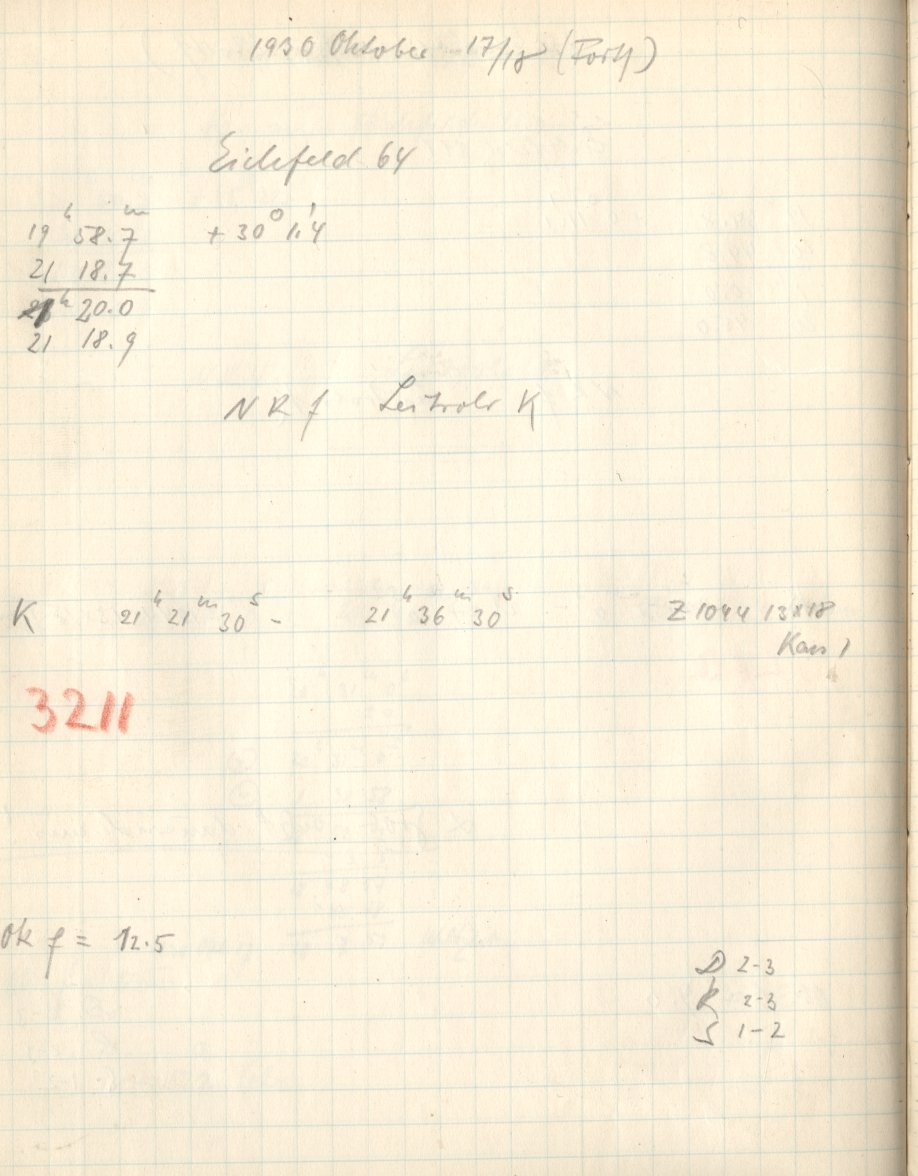 1930 Oktober 17/18 (Forts)
Eichfeld 64
19ʰ 58.7ᵐ + 30° 1!4
21 18.7
21ʰ 20.0
21 18.9
N R f Leitrohr K
K 21ʰ 21ᵐ 30ˢ - 21ʰ 36ᵐ 30ˢ Z 1044 13x18
Kas 1
3211
Ok f = 12.5
D 2-3
R 2-3
S 1-2